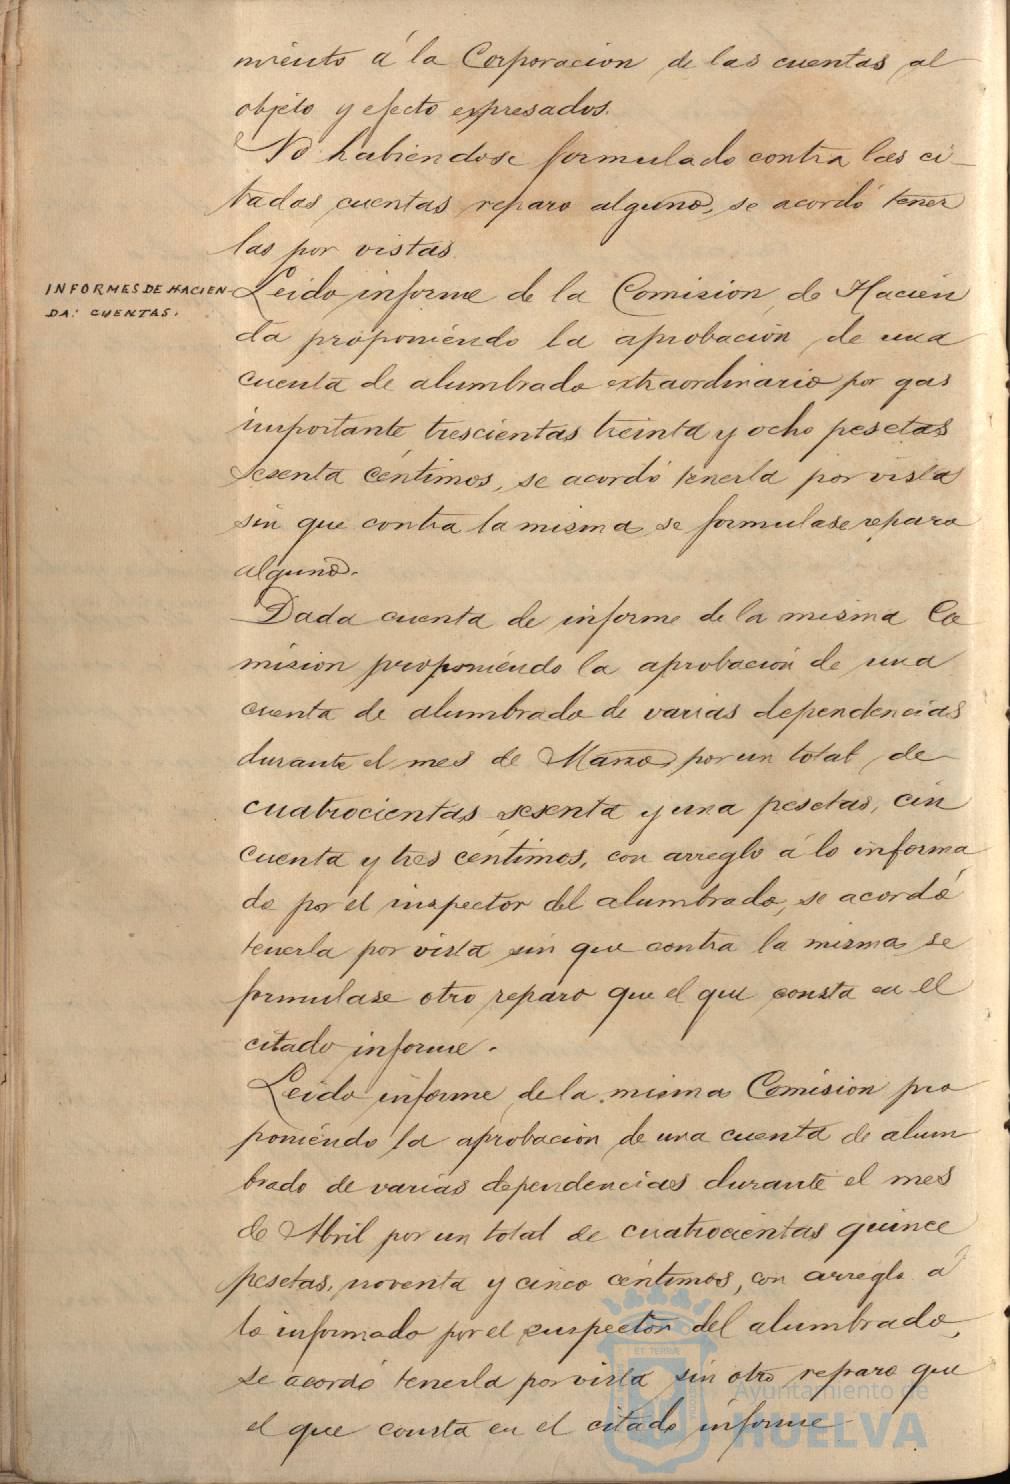 miento á la Corporacion de las cuentas al
objeto y efecto expresados.
No habiendose formulado contra las ci-
tadas cuentas reparo alguno, se acordó tener
las por vistas.
INFORMES DE HACIEN-
DA: CUENTAS.
Leido informe de la Comision de Hacien
da proponiéndo la aprobación de una
cuenta de alumbrado extraordinario por gas
importante trescientas treinta y ocho pesetas
sesenta céntimos, se acordó tenerla por vista
sin que contra la misma se formulase reparo
alguno.
Dada cuenta de informe de la misma Co
mision proponiéndo la aprobación de una
cuenta de alumbrado de varias dependencias
durante el mes de Marzo por un total de
cuatrocientas sesenta y una pesetas, cin
cuenta y tres céntimos, con arreglo á lo informa
do por el inspector del alumbrado, se acordó
tenerla por vista sin que contra la misma se
formulase otro reparo que el que consta en el
citado informe.
Leido informe de la misma Comision pro
poniéndo la aprobación de una cuenta de alum
brado de varias dependencias durante el mes
de Abril por un total de cuatrocientas quince
pesetas, noventa y cinco céntimos, con arreglo á
lo informado por el inspector del alumbrado,
se acordó tenerla por vista sin otro reparo que
el que consta en el citado informe
Ayuntamiento de
HUELVA